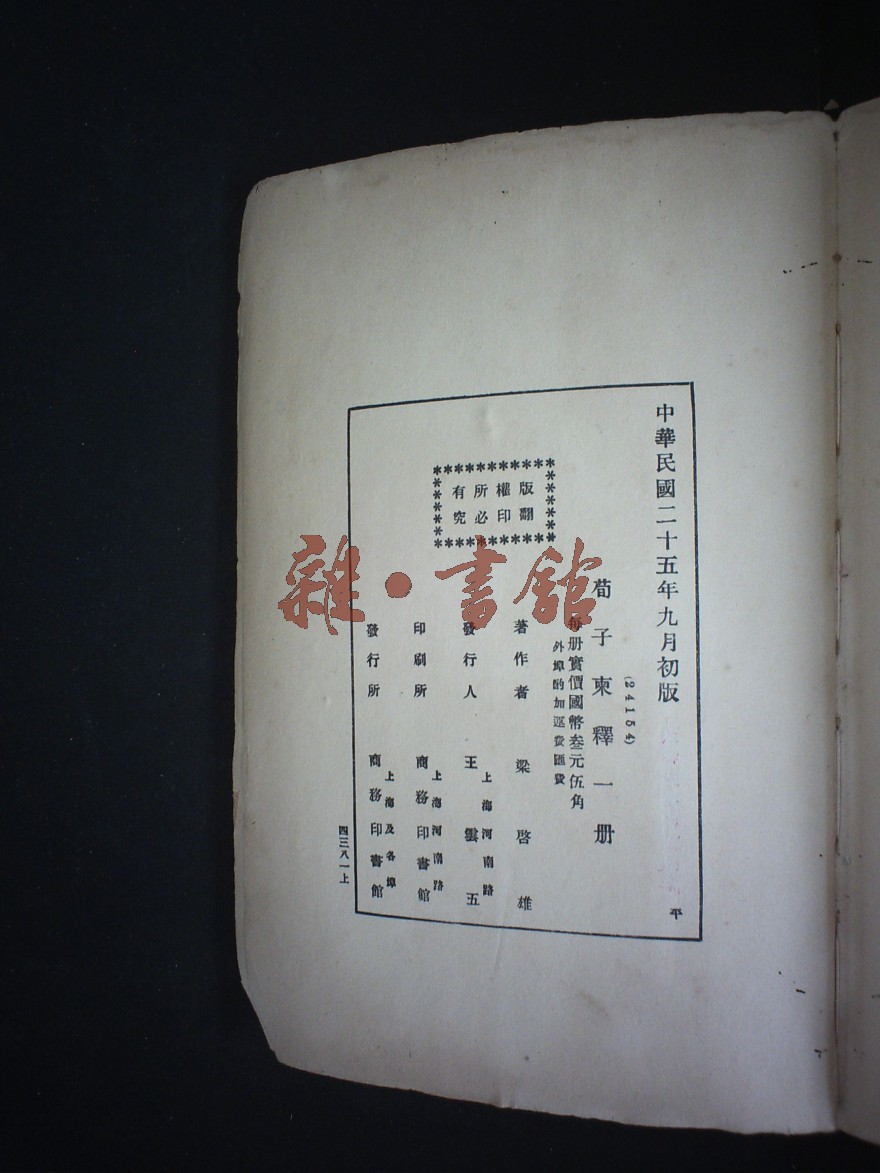 中華民國二十五年九月初版
平
(24154)
荀子柬釋一册
每册實價國幣叁元伍角
外埠酌加運費匯費
版權所有
翻印必究
著作者 梁啓雄
發行人 王雲五
上海河南路
印刷所 商務印書館
上海河南路
發行所 商務印書館
上海及各埠
四三八一上
雜·書館